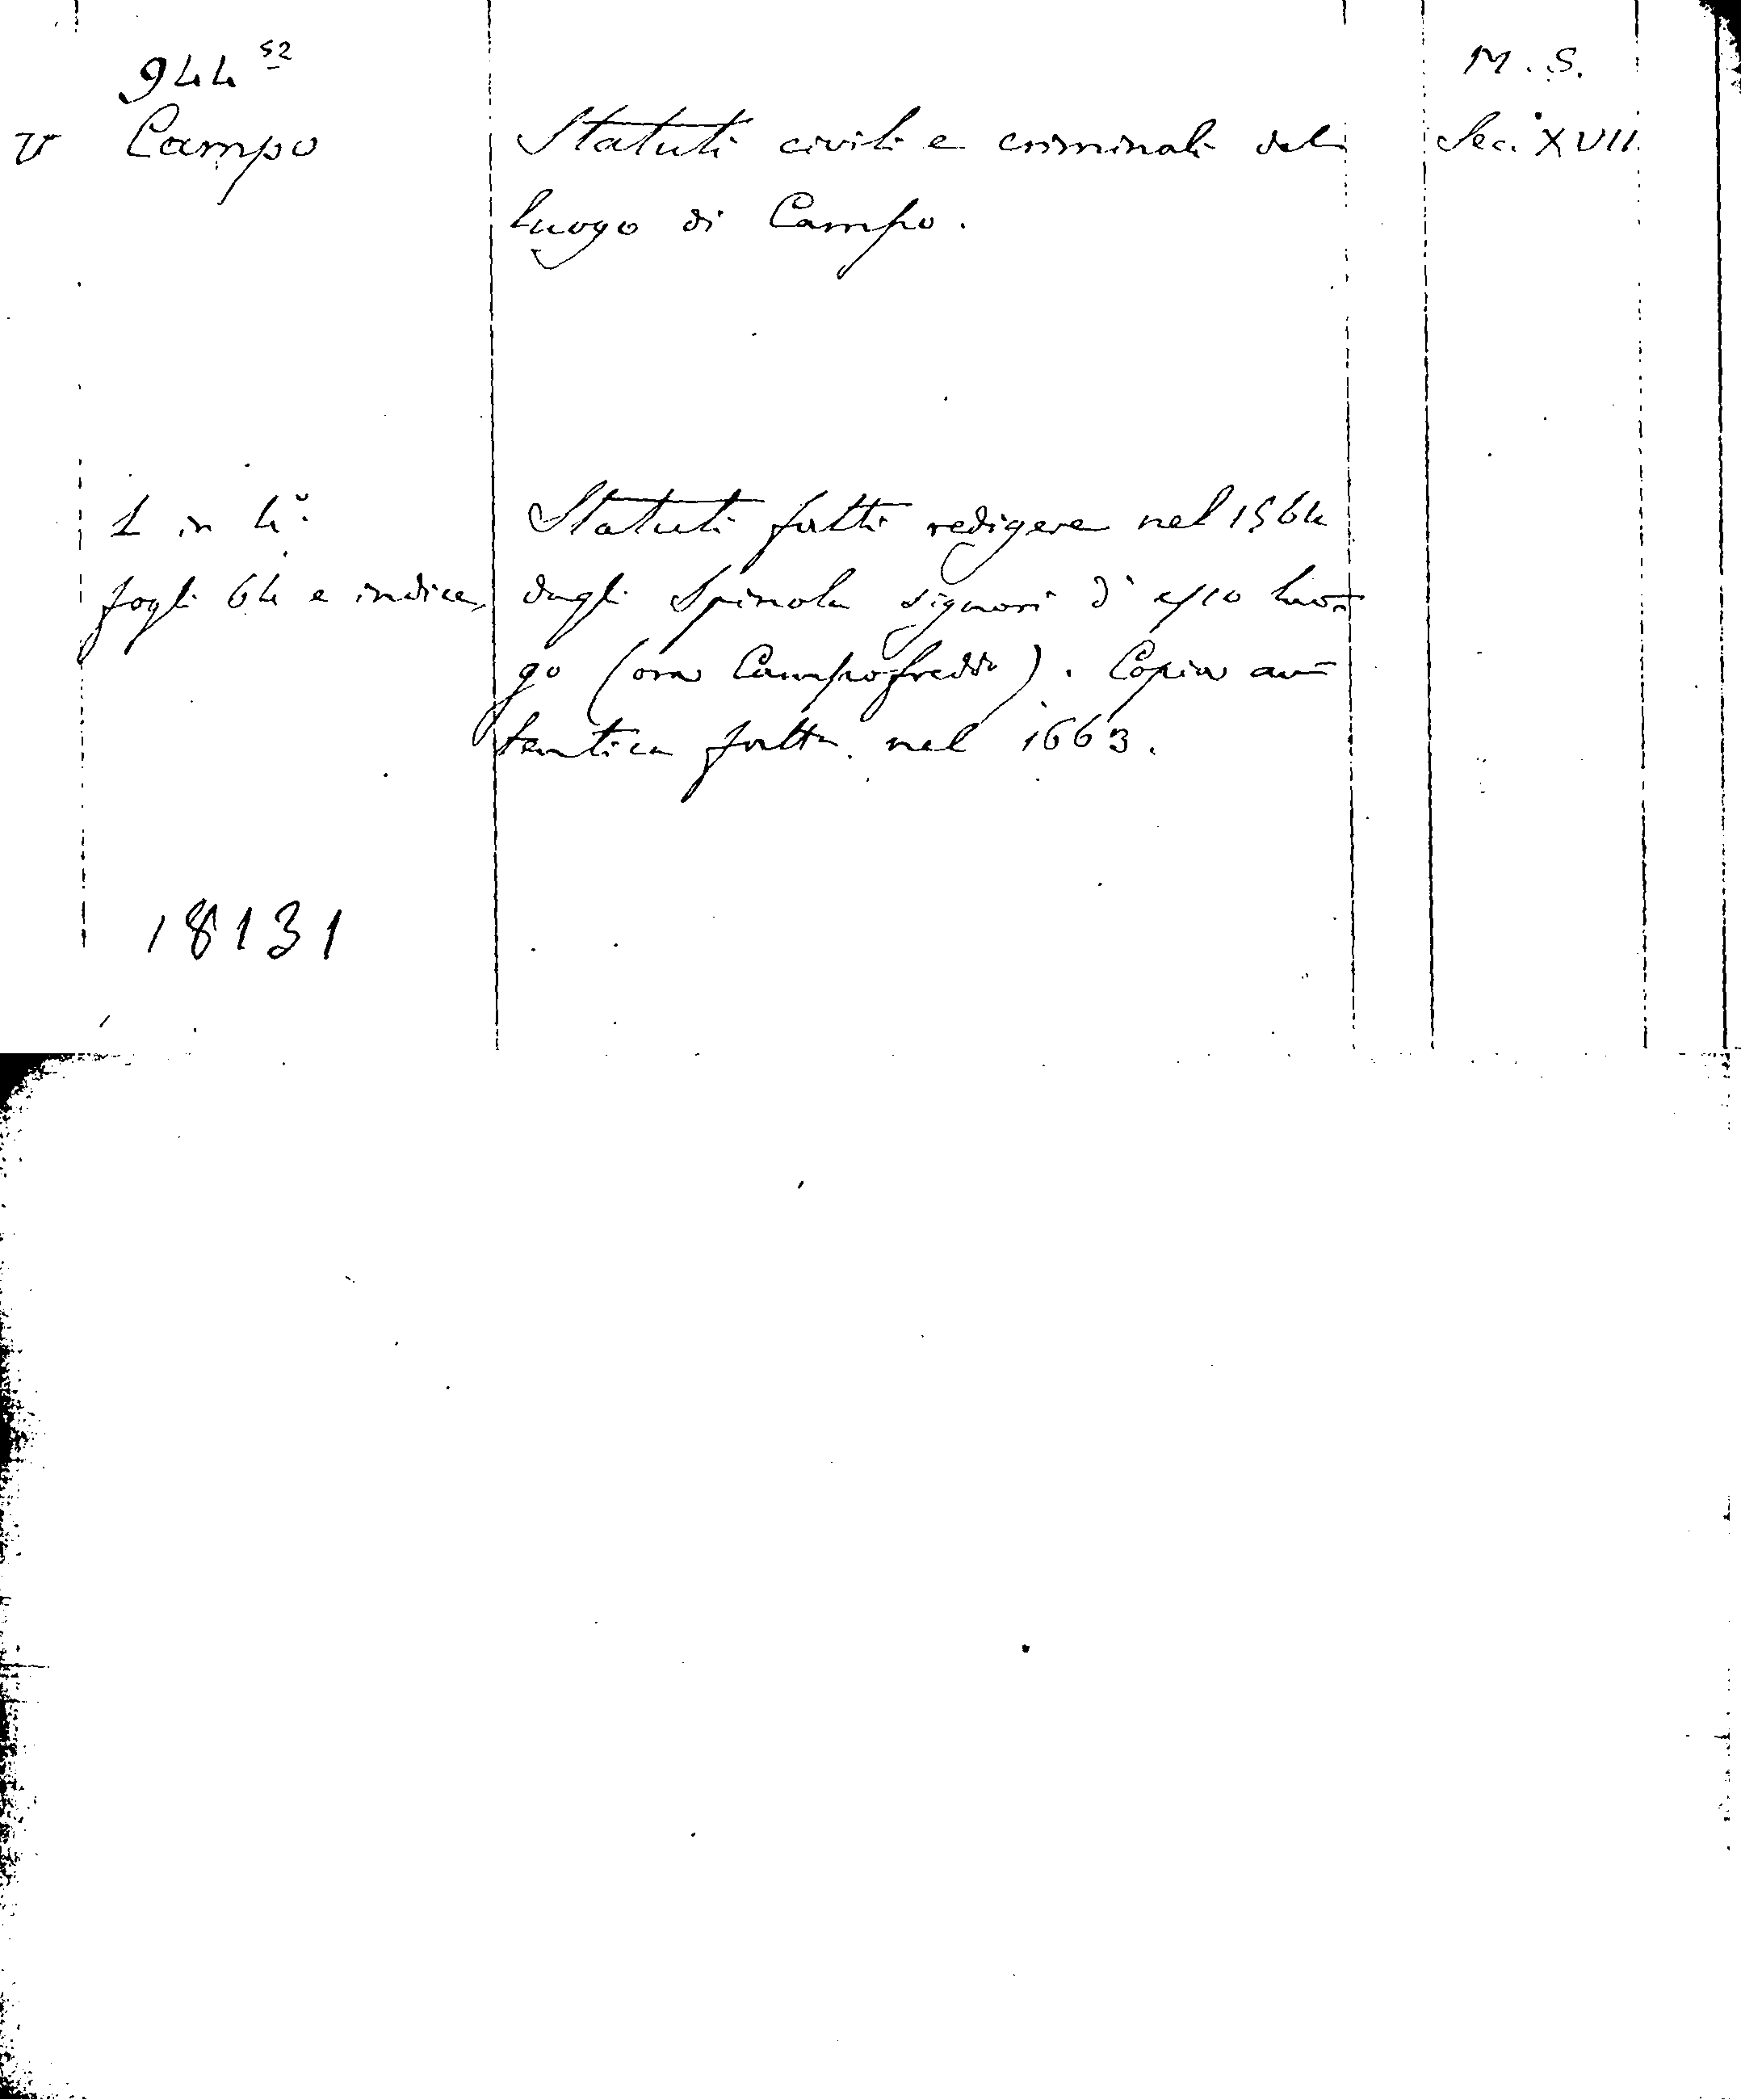 944 52
M. S.
v Campo
Statuti civili e criminali del
Sec. XVII
luogo di Campo.
1 in 4º.
fogli 64 e indice
Statuti fatti redigere nel 1564
dagli Spinola signori d'esso luo-
go (ora Campofreddo). Copia au-
tentica fatta nel 1663.
18131